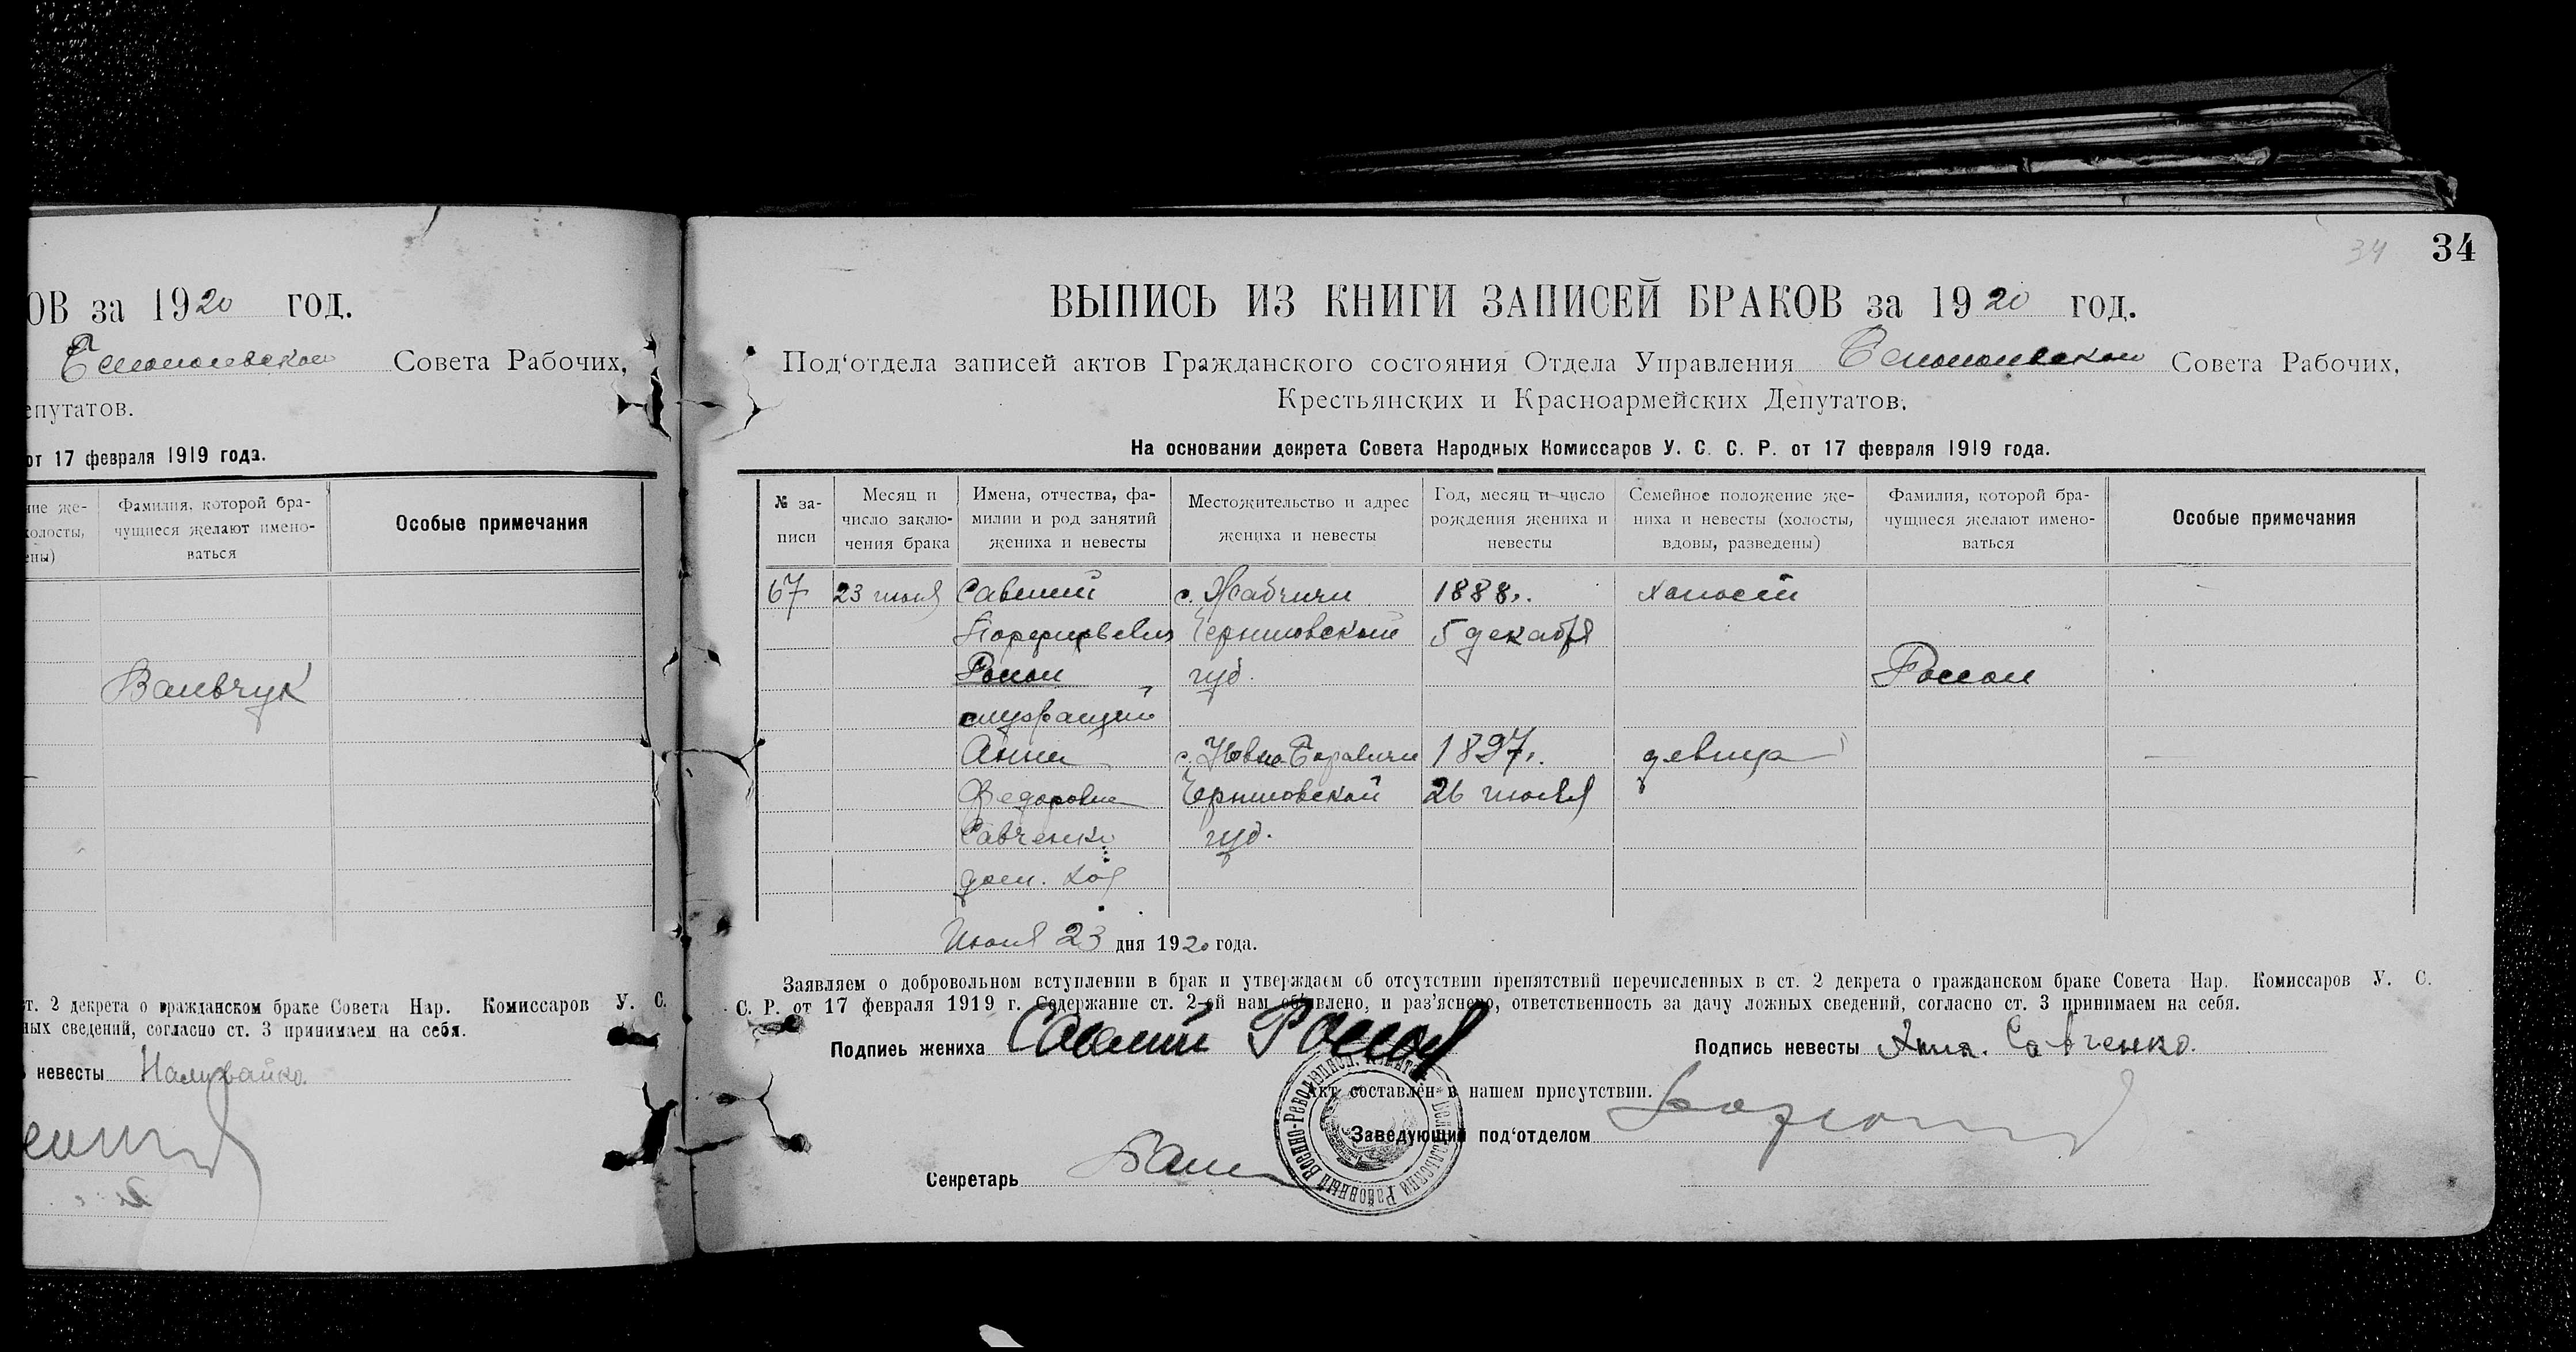 ОВ за 1920 год.
Совета Рабочих,
епутатов.
от 17 февраля 1919 года.
ние же-
холосты,
ены)
Фамилия, которой бра-
чущиеся желают имено-
ваться
Особые примечания
ст. 2 декрета о гражданском браке Совета Нар. Комиссаров У. С.
ных сведений, согласно ст. 3 принимаем на себя.
невесты Наливайко
34
34
ВЫПИСЬ ИЗ КНИГИ ЗАПИСЕЙ БРАКОВ за 1920 год.
Под‘отдела записей актов Гражданского состояния Отдела Управления Совета Рабочих,
Крестьянских и Красноармейских Депутатов.
На основании декрета Совета Народных Комиссаров У. С. С. Р. от 17 февраля 1919 года.
№ за-
писи
Месяц и
число заклю-
чения брака
Имена, отчества, фа-
милии и род занятий
жениха и невесты
Местожительство и адрес
жениха и невесты
Год, месяц и число
рождения жениха и
невесты
Семейное положение же-
ниха и невесты (холосты,
вдовы, разведены)
Фамилия, которой бра-
чущиеся желают имено-
ваться
Особые примечания
67 23 июня Савелий с. Жабчичи 1888г. холост
Порфирьевич Черниговской 5 декабря
губ.
служащий
Анна с. Боровичи 1897г. девица
Федоровна Черниговской 26 июля
Савченко губ.
дом. хоз
Июня 23 дня 1920 года.
Заявляем о добровольном вступлении в брак и утверждаем об отсутствии препятствий перечисленных в ст. 2 декрета о гражданском браке Совета Нар. Комиссаров У. С.
С. Р. от 17 февраля 1919 г. Содержание ст. 2-ой нам об‘явлено, и раз’яснено, ответственность за дачу ложных сведений, согласно ст. 3 принимаем на себя.
Подпись жениха Савелий
Подпись невесты Анна. Савченко.
Акт составлен в нашем присутствии.
Заведующий под‘отделом
Секретарь